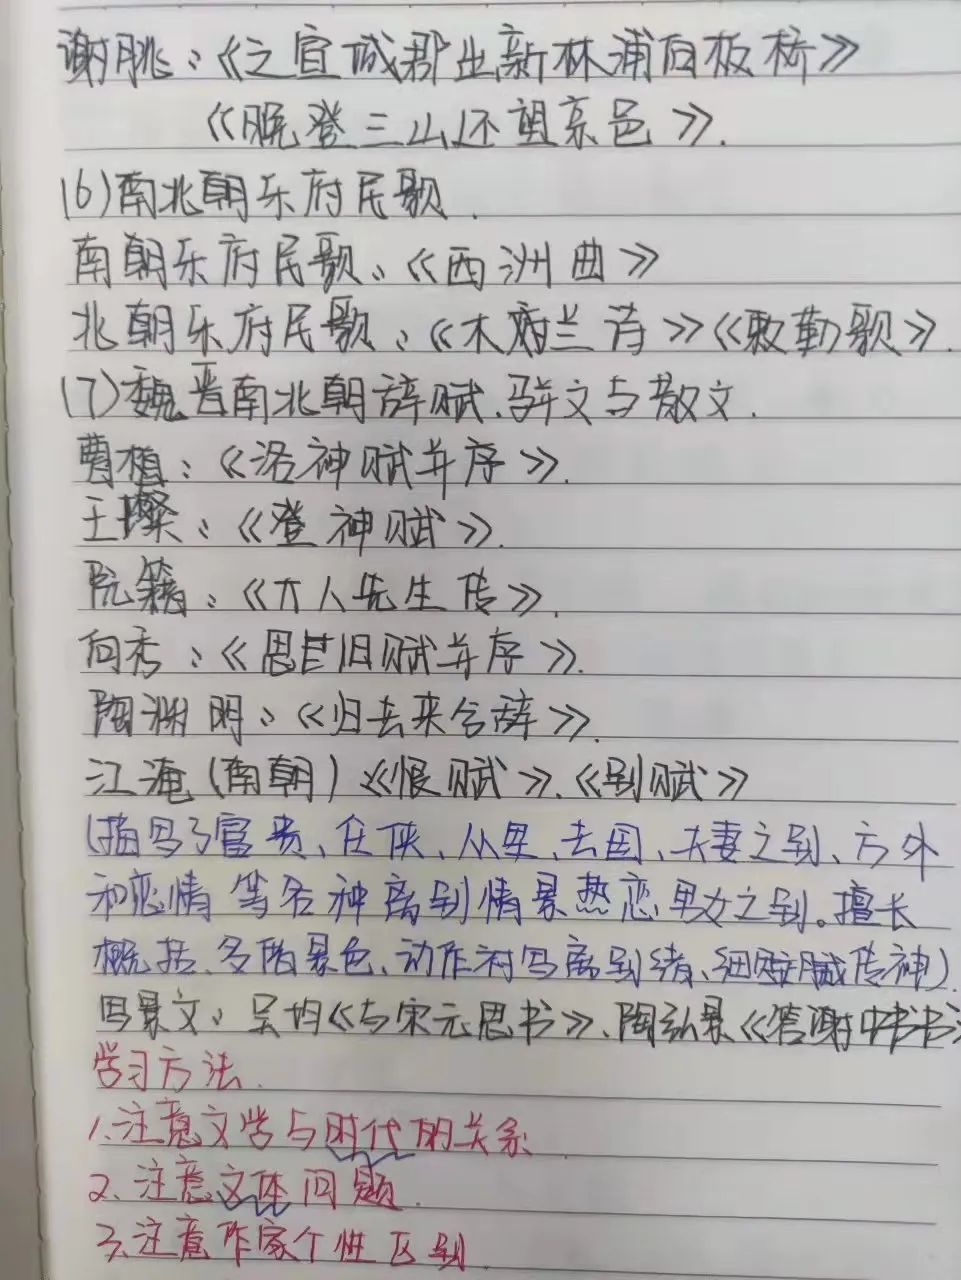 谢朓:《之宣城郡出新林浦向板桥》
《晚登三山还望京邑》.
(6)南北朝乐府民歌.
南朝乐府民歌:《西洲曲》
北朝乐府民歌:《木兰诗》《敕勒歌》.
(7)魏晋南北朝辞赋.骈文与散文.
曹植:《洛神赋并序》.
王粲:《登神赋》.
阮籍:《大人先生传》.
向秀:《思旧赋并序》.
陶渊明:《归去来兮辞》.
江淹(南朝)《恨赋》.《别赋》
(描写了富贵、任侠、从军、去国、夫妻之别、方外
和恋情等各种离别情景热恋男女之别。擅长
概括、多借景色、动作衬写离别绪、细腻传神).
写景文:吴均《与宋元思书》、陶弘景《答谢中书书》
学习方法.
1.注意文学与时代的关系.
2.注意文体问题.
3.注意作家个性区别.